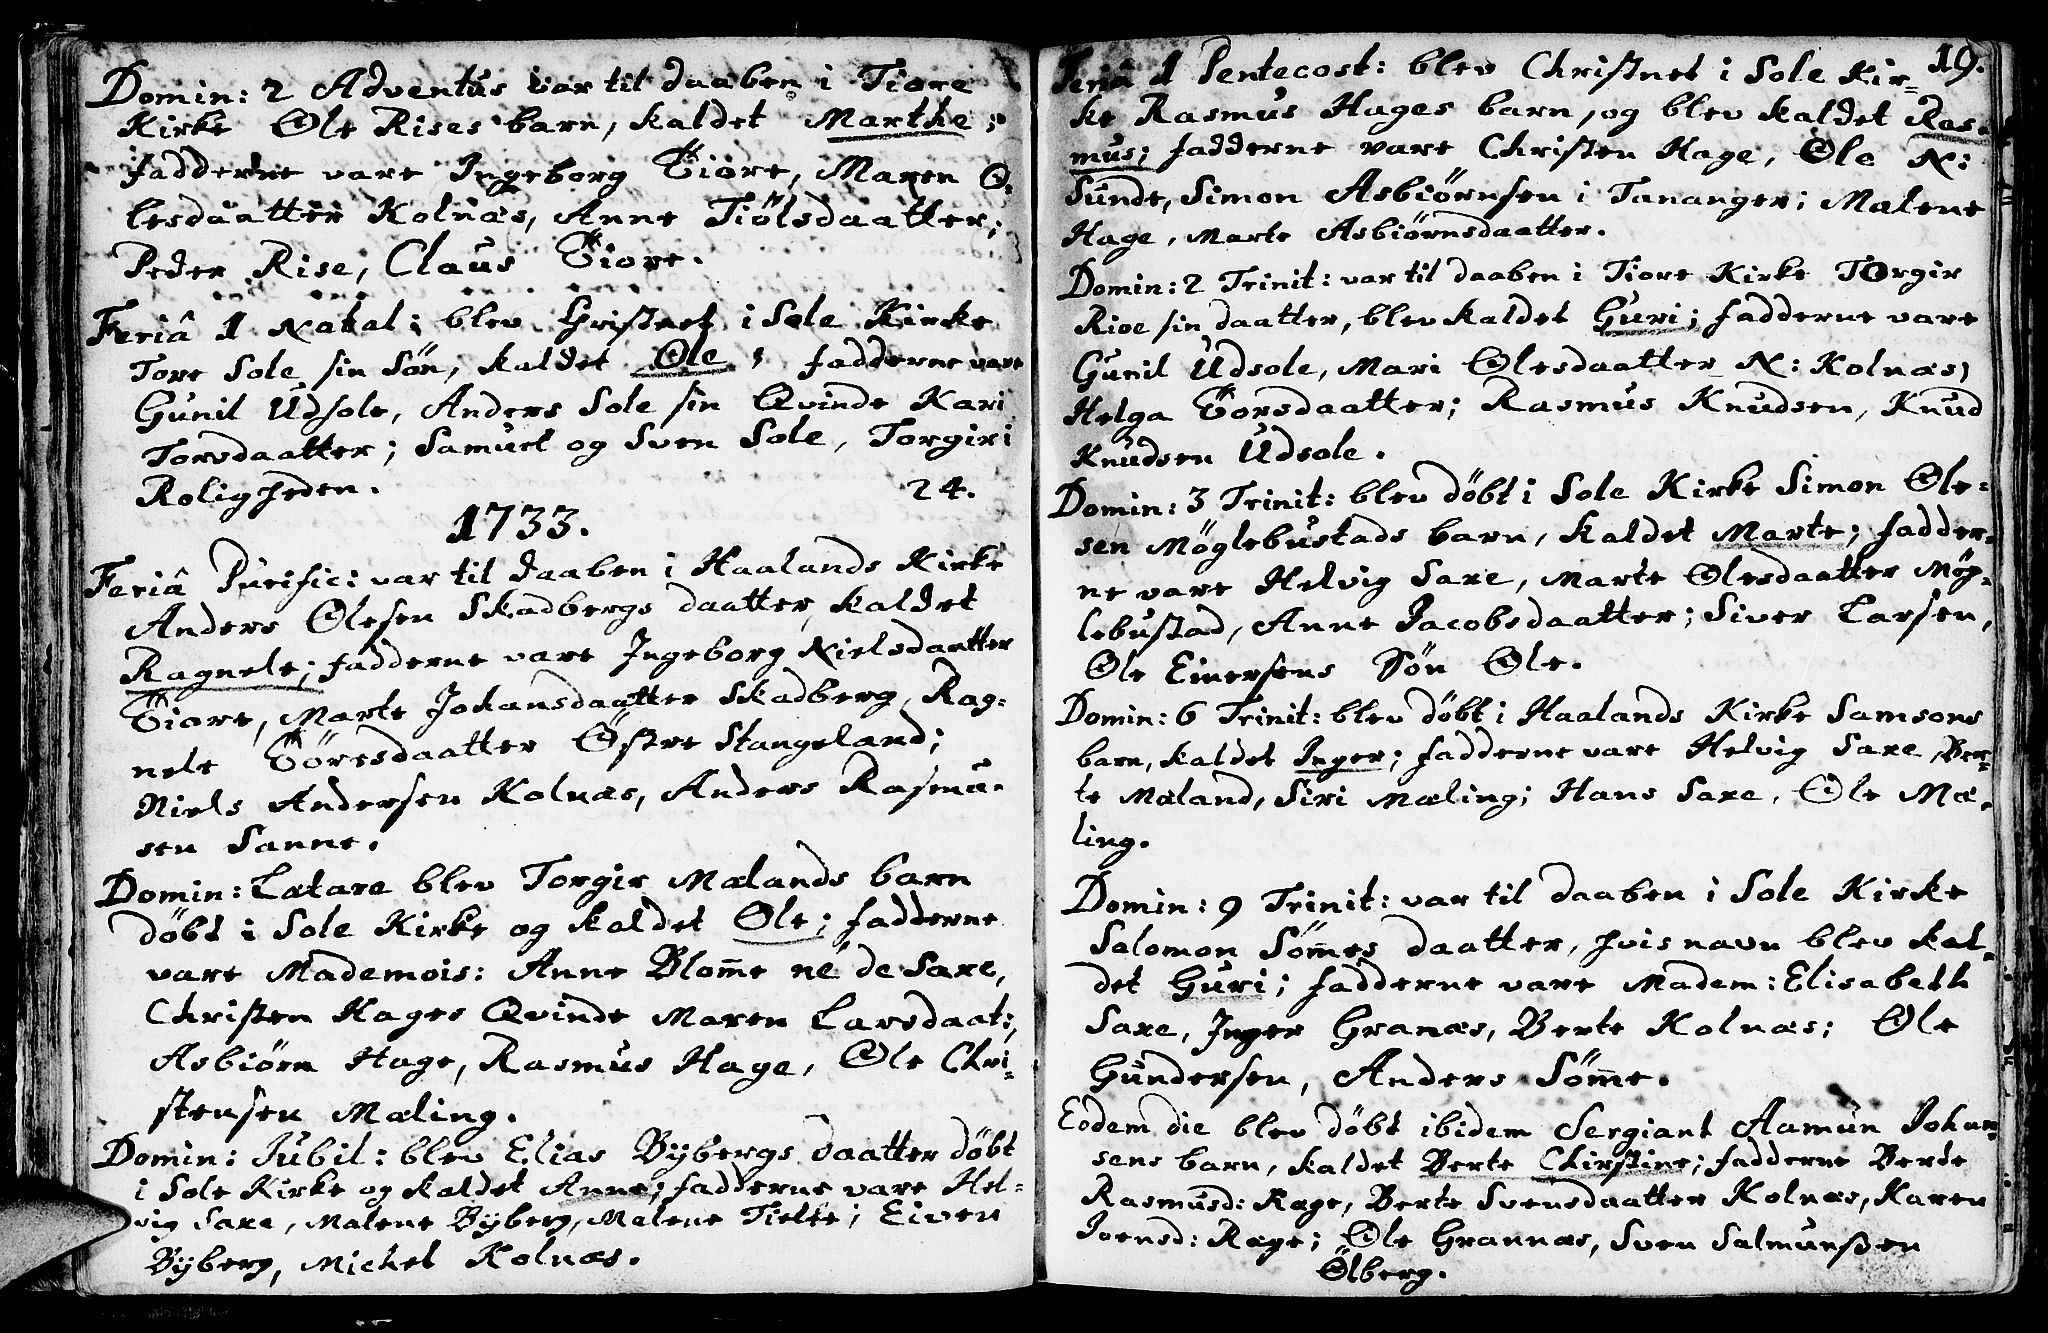 Domin: 2 Adventus var til daaben i Tiore
Kirke Ole Rises barn, kaldet Marthe;
fadderne vare Ingeborg Tiore, Maren O-
lesdaatter Kolnæs, Anne Tiölsdaatter;
Peder Rise, Claus Tiore.
Feriâ 1 Natal: blev Christnet i Sole Kirke
Tore Sole sin Sön, kaldet Ole; fadderne vare
Gunil Udsole, Anders Sole sin Qvinde Kari
Torsdaatter; Samuel og Sven Sole, Torgir i
Roligheden. 24.
1733.
Feriâ Purific: var til daaben i Haalands Kirke
Anders Olesen Skadbergs daatter, kaldet
Ragnele; fadderne vare Ingeborg Nielsdaatter
Tiore, Marte Johansdaatter Skadberg, Rag-
nele Töresdaatter Østre Stangeland;
Niels Andersen Kolnæs, Anders Rasmu-
sen Sanne.
Domin: Lætare blev Torgir Mælands barn
döbt i Sole Kirke og kaldet Ole; fadderne
vare Mademois: Anne Blom̅e né de Saxe,
Christen Hages Qvinde Maren Larsdaat:,
Asbiörn Hage, Rasmus Hage, Ole Chri-
stensen Mæling.
Domin: Jubil: blev Elias Bÿbergs daatter döbt
i Sole Kirke og kaldet Anne; fadderne vare Hel-
vig Saxe, Malene Bÿberg, Malene Tielte; Eiven
Bÿberg, Michel Kolnæs.
19.
Feriâ 1 Pentecost: blev Christnet i Sole Kir-
ke Rasmus Hages barn, og blev kaldet Ras-
mus; fadderne vare Christen Hage, Ole N:
Sunde, Simon Asbiörnsen i Tananger; Malene
Hage, Marte Asbiörnsdaatter.
Domin: 2 Trinit: var til daaben i Tiore Kirke Torgir
Rise sin daatter, blev kaldet Guri; fadderne vare
Gunil Udsole, Mari Olesdaatter N: Kolnæs,
Helga Torsdaatter; Rasmus Knudsen, Knud
Knudsen Udsole.
Domin: 3 Trinit: blev döbt i Sole Kirke Simon Ole-
sen Möglebustads barn, kaldet Marte; fadder-
ne vare Helvig Saxe, Marte Olesdaatter Mög-
lebustad, Anne Jacobsdaatter; Siver Larsen,
Ole Einersens Sön Ole.
Domin: 6 Trinit: blev döbt i Haalands Kirke Samsons
barn, kaldet Inger; fadderne vare Helvig Saxe, Ber-
te Mæland, Siri Mæling; Hans Saxe, Ole Mæ-
ling.
Domin: 9 Trinit: var til daaben i Sole Kirke
Salomon Söm̅es daatter, hvis navn blev kal-
det Guri; fadderne vare Madem: Elisabeth
Saxe, Inger Granæs, Berte Kolnæs; Ole
Gundersen, Anders Söm̅e.
Eodem die blev döbt ibidem Sergiant Aamun Johan-
sens barn, kaldet Berte Chirstine; fadderne Berte
Rasmusd: Rage, Berte Svensdaatter Kolnæs, Karen
Joensd: Rage; Ole Grannæs, Sven Salmunssen
Ölberg.